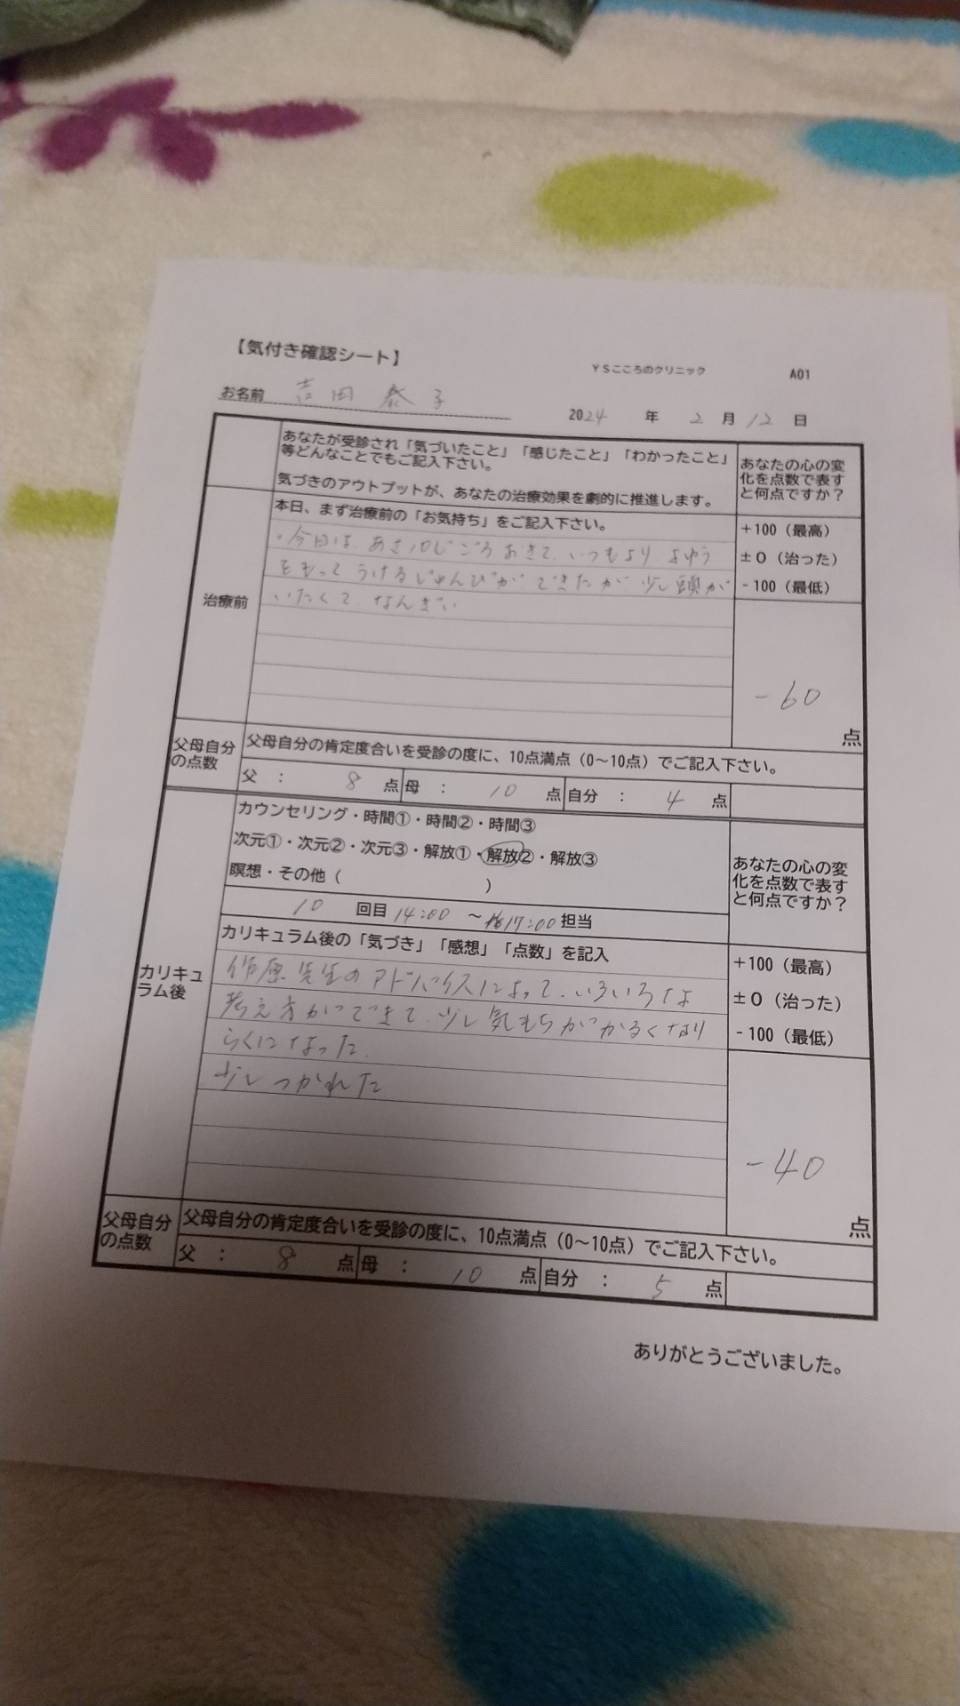 【気付き確認シート】
YSこころのクリニック A01
お名前 吉田 泰子
2024 年 2 月 12 日
あなたが受診され「気づいたこと」「感じたこと」「わかったこと」
等どんなことでもご記入下さい。
気づきのアウトプットが、あなたの治療効果を劇的に推進します。
あなたの心の変
化を点数で表す
と何点ですか？
治療前
本日、まず治療前の「お気持ち」をご記入下さい。
・今日は、あさ10じごろおきて、いつもより よゆう
をもって うけるじゅんびが できたが 少し頭が
いたくて なんぎい
+100（最高）
±0（治った）
-100（最低）
-60
点
父母自分
の点数
父母自分の肯定度合いを受診の度に、10点満点（0～10点）でご記入下さい。
父 ： 8 点 母 ： 10 点 自分 ： 4 点
カリキュ
ラム後
カウンセリング・時間①・時間②・時間③
次元①・次元②・次元③・解放①・解放②・解放③
瞑想・その他（ ）
10 回目 14:00 ～ 17:00 担当
あなたの心の変
化を点数で表す
と何点ですか？
カリキュラム後の「気づき」「感想」「点数」を記入
先生のアドバイスによって、いろいろな
考え方がでできて、少し気もちがかるくなり
らくになった。
少しつかれた
+100（最高）
±0（治った）
-100（最低）
-40
点
父母自分
の点数
父母自分の肯定度合いを受診の度に、10点満点（0～10点）でご記入下さい。
父 ： 8 点 母 ： 10 点 自分 ： 5 点
ありがとうございました。